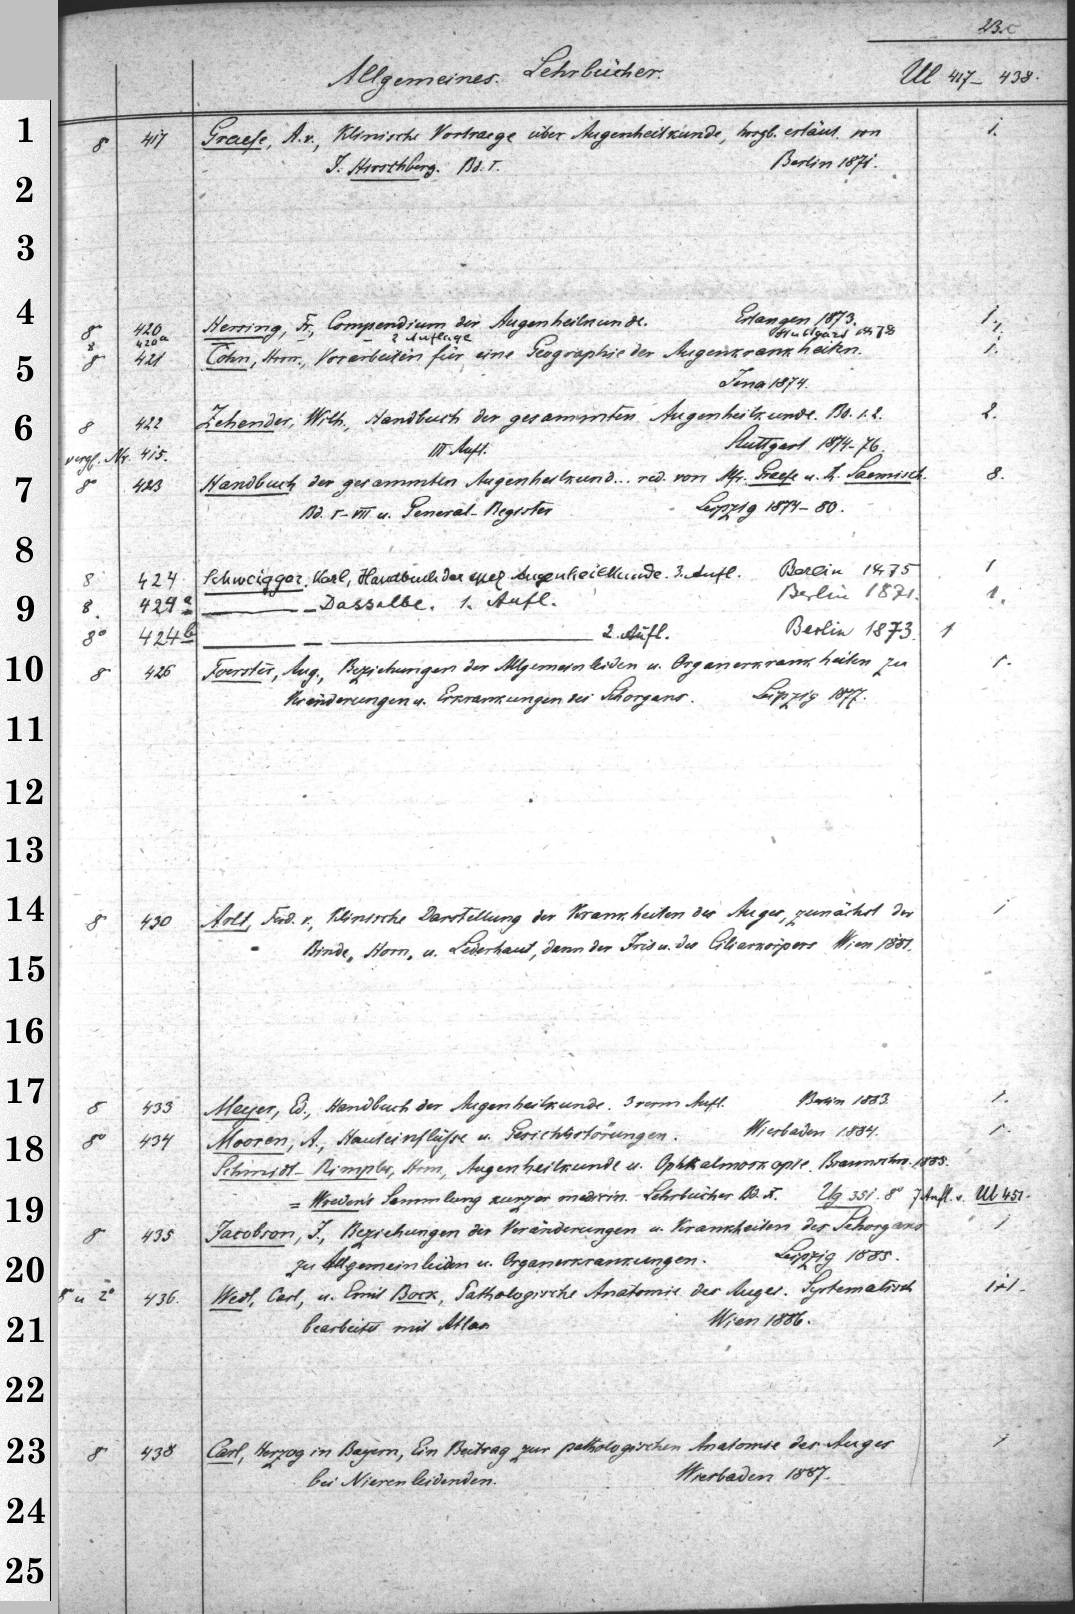 23.c
Allgemeines. Lehrbücher. Ul 417-438.
1 8° 417 Graefe, A.v., Klinische Vortraege über Augenheilkunde, hrsgb. erläut. von 1.
J. Hirschberg. Bd. I. Berlin 1871.
2
3
4 8° 420 Hersing, Fr., Compendium der Augenheilkunde. Erlangen 1873. 1.
8 420a 2 Auflage Stuttgart 1878 1.
5 8° 421 Cohn, Hrm., Vorarbeiten für eine Geographie der Augenkrankheiten. 1.
Jena 1874.
6 8 422 Zehender, Wilh., Handbuch der gesammten Augenheilkunde. Bd. 1.2. 2.
vergl. Nr. 415. III Aufl. Stuttgart 1874-76.
7 8° 423 Handbuch der gesammten Augenheilkund... red. von Alfr. Graefe u. Th. Saemisch. 8.
Bd. I-VII u. General-Register Leipzig 1874-80.
8
8 424 Schweigger, Karl, Handbuch der spez. Augenheilkunde. 3. Aufl. Berlin 1875 1
9 8. 424a — Dasselbe. 1. Aufl. Berlin 1871. 1.
8° 424b — — 2. Aufl. Berlin 1873. 1
10 8° 426 Foerster, Aug., Beziehungen der Allgemeinleiden u. Organerkrankheiten zu 1.
Veränderungen u. Erkrankungen des Sehorgans. Leipzig 1877.
11
12
13
14 8° 430 Arlt, Ferd. v., Klinische Darstellung der Krankheiten des Auges, zunächst der 1
Binde, Horn, u. Lederhaut, dann der Iris u. des Ciliarkörpers Wien 1881.
15
16
17 8 433 Meyer, Ed., Handbuch der Augenheilkunde. 3 verm Aufl. Berlin 1883. 1.
18 8° 434 Mooren, A., Hauteinflüsse u. Gesichtsstörungen. Wiesbaden 1884. 1.
Schmidt-Rimpler, Hrm, Augenheilkunde u. Ophthalmoskopie. Braunschw. 1885.
19 = Wreden's Sammlung kurzer medicin. Lehrbücher Bd. X. Ug 351. 8° 7 Aufl. v. Ul 451.
8° 435 Jacobson, J., Beziehungen der Veränderungen u. Krankheiten des Sehorgans 1
20 zu Allgemeinleiden u. Organerkrankungen. Leipzig 1885.
8° u 2° 436. Wedl, Carl, u. Emil Bock, Pathologische Anatomie des Auges. Systematisch 1+1.
21 bearbeitet mit Atlas Wien 1886.
22
23 8° 438 Carl, Herzog in Bayern, Ein Beitrag zur pathologischen Anatomie des Auges 1
bei Nierenleidenden. Wiesbaden 1887.
24
25